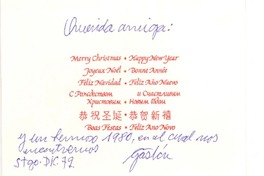 Querida amiga:
Merry Christmas • Happy New Year
Joyeux Noël • Bonne Année
Feliz Navidad • Feliz Año Nuevo
С Рождеством Христовым • и Счастливым Новым Годом
恭祝圣诞 • 恭贺新禧
Boas Festas • Feliz Ano Novo
y un hermoso 1980, en el cual nos
encontremos
Gastón
Stgo. DIC. 79